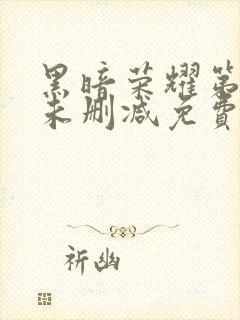 黑暗荣耀第
未删减免费
祈幽